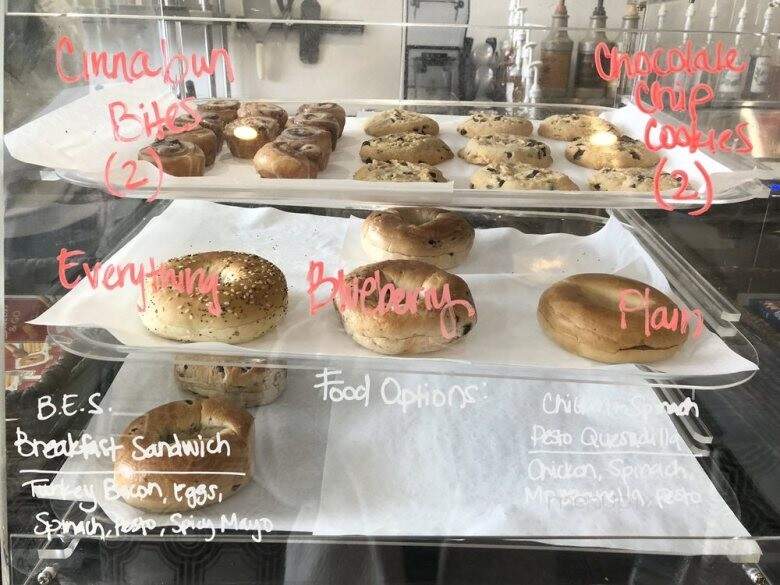 Cinnabun
Bites
(2)
Chocolate
Chip
Cookies
(2)
Everything
Blueberry
Plain
Food Options:
B.E.S.
Breakfast Sandwich
Turkey Bacon, Eggs,
Spinach, Pesto, Spicy Mayo
Chicken Spinach
Pesto Quesadilla
Chicken, Spinach,
Mozzarella, Pesto